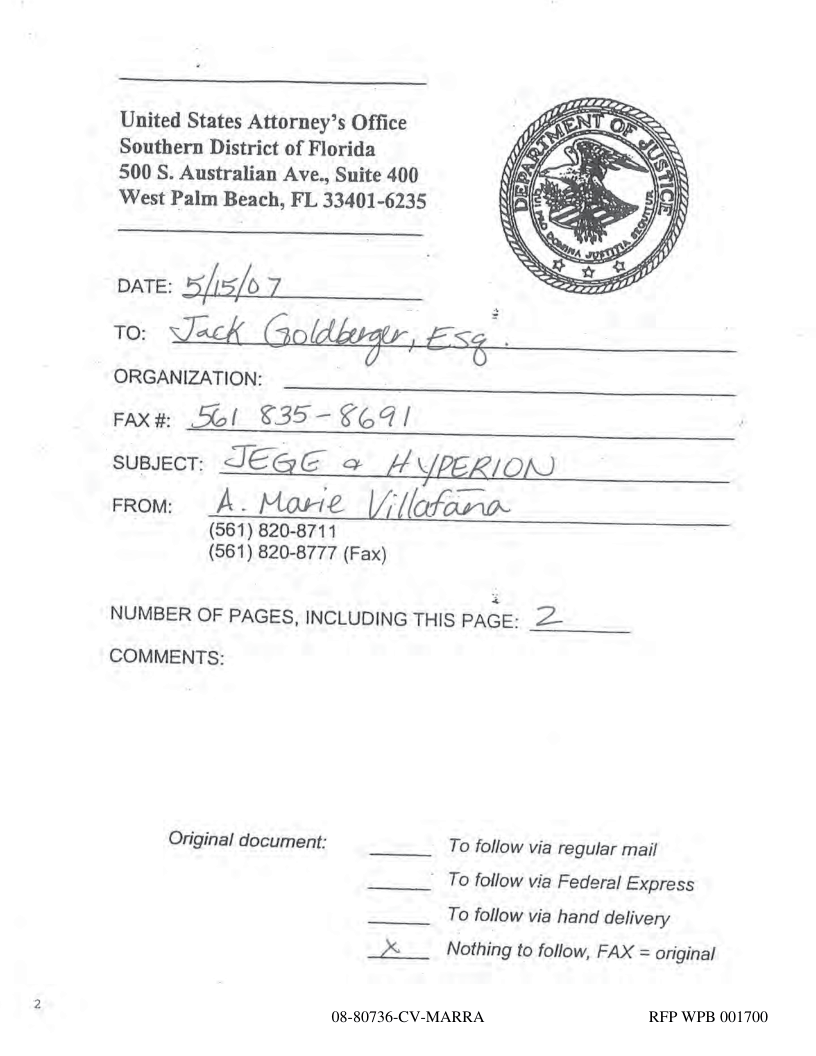 United States Attorney's Office
Southern District of Florida
500 S. Australian Ave., Suite 400
West Palm Beach, FL 33401-6235
DEPARTMENT OF JUSTICE
QUI PRO DOMINA JUSTITIA SEQUITUR
DATE: 5/15/07
TO: Jack Goldberger, Esq.
ORGANIZATION:
FAX #: 561 835-8691
SUBJECT: JEGE & HYPERION
FROM: A. Marie Villafaña
(561) 820-8711
(561) 820-8777 (Fax)
NUMBER OF PAGES, INCLUDING THIS PAGE: 2
COMMENTS:
Original document:
To follow via regular mail
To follow via Federal Express
To follow via hand delivery
X Nothing to follow, FAX = original
2
08-80736-CV-MARRA RFP WPB 001700